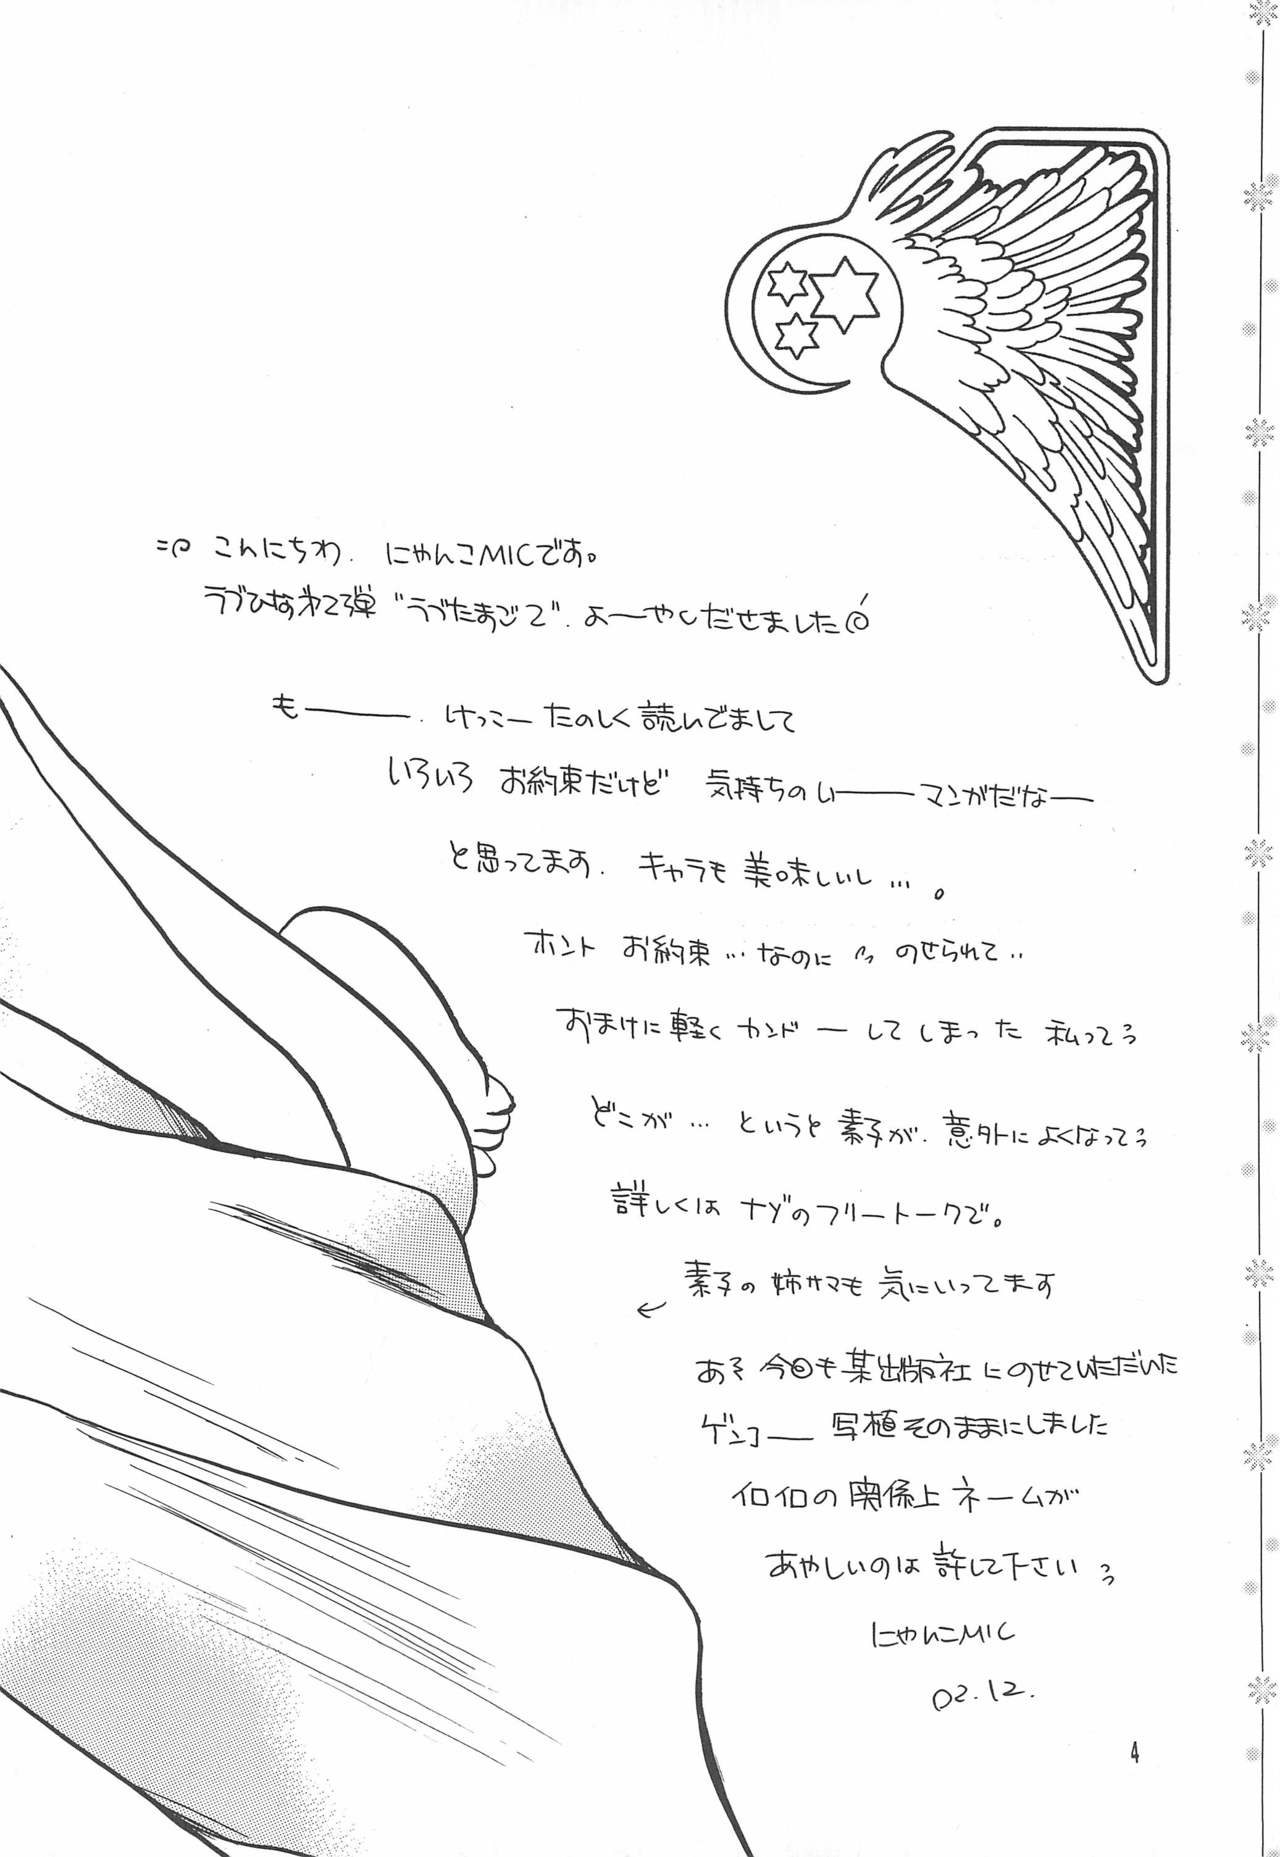 こんにちわ. にゃんこMICです。
ラブひな 弾 "ラブたまごで". よーやくだせました
も——. けっこーたのしく読んでまして
いろいろ お約束だけど 気持ちのいー——マンガだなー
と思ってます. キャラも美味しいし…。
ホント お約束…なのに のせられて‥
おまけに軽く カンドーしてしまった 私って
どこが… というと 素子が. 意外によくなってっ
詳しくは ナゾのフリートークで。
素子の 姉サマも 気にいってます
あそ 今回も某出版社にのせていただいた
ゲンコー 写植そのままにしました
イロイロの関係上 ネームが
あやしいのは 許して下さい
にゃんこMIC
02.12.
4